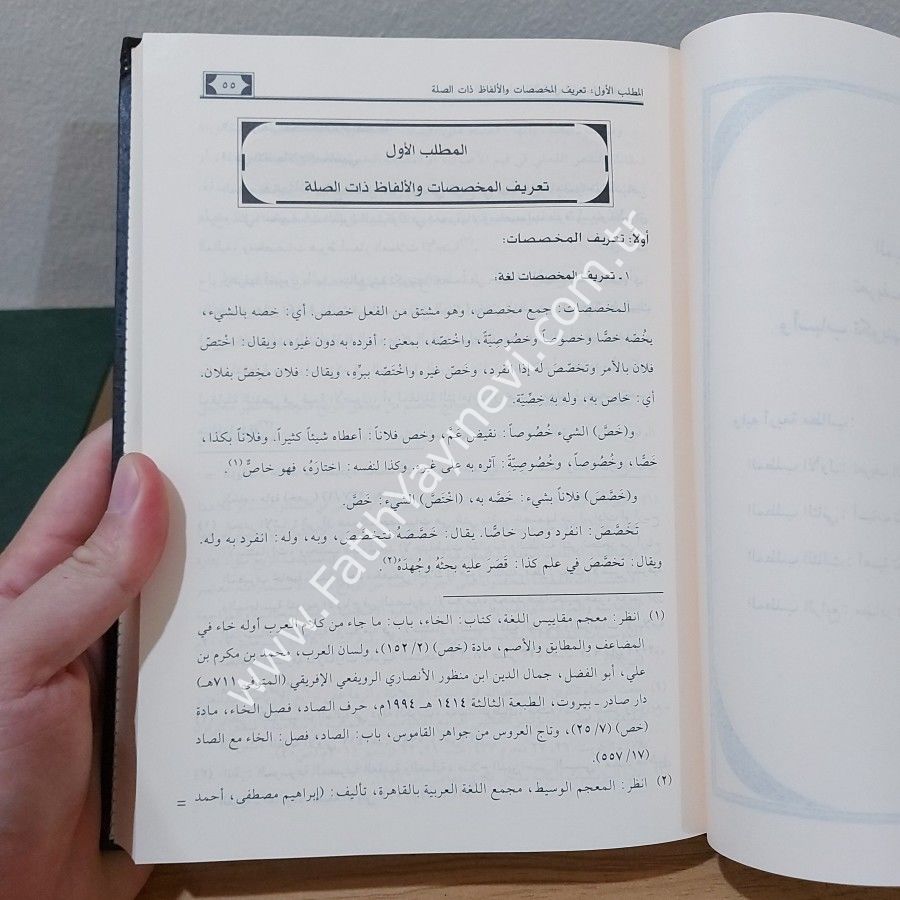 المطلب الأول: تعريف المخصصات والألفاظ ذات الصلة
٥٥
المطلب الأول
تعريف المخصصات والألفاظ ذات الصلة
أولاً: تعريف المخصصات:
١ ـ تعريف المخصصات لغة:
المخصصات: جمع مخصص، وهو مشتق من الفعل خصص. أي: خصه بالشيء،
يخُصّه خصًّا وخصوصاً وخصُوصِيَّةً، واختصّه، بمعنى: أفرده به دون غيره، ويقال: اخْتصّ
فلان بالأمر وتخصّصَ له إذا انفرد، وخَصّ غيره واخْتَصّه ببرِّه، ويقال: فلان مخِصّ بفلان.
أي: خاص به، وله به خِصِّيّة.
و(خَصَّ) الشيء خُصُوصاً: نقيض عَمَّ، وخص فلاناً: أعطاه شيئاً كثيراً. وفلاناً بكذا،
خَصًّا، وخُصُوصاً، وخُصُوصِيَّةً: آثره به على غيره. وكذا لنفسه: اختارَهُ، فهو خاصٌّ(١).
و(خَصَّصَ) فلاناً بشيء: خَصَّه به، (اخْتَصَّ) الشيء: خَصَّ.
تَخَصَّصَ: انفرد وصار خاصًّا. يقال: خَصَّصَهُ فتخصَّصَ، وبه، وله: انفرد به وله.
ويقال: تخصَّصَ في علم كذا: قَصَرَ عليه بحثَهُ وجُهدَهُ(٢).
(١) انظر: معجم مقاييس اللغة، كتاب: الخاء، باب: ما جاء من كلام العرب أوله خاء في
المضاعف والمطابق والأصم، مادة (خص) (٢/ ١٥٢)، ولسان العرب، محمد بن مكرم بن
علي، أبو الفضل، جمال الدين ابن منظور الأنصاري الرويفعي الإفريقي (المتوفى ٧١١هـ)
دار صادر ـ بيروت، الطبعة الثالثة ١٤١٤ هـ ـ ١٩٩٤م، حرف الصاد، فصل الخاء، مادة
(خص) (٧/ ٢٥)، وتاج العروس من جواهر القاموس، باب: الصاد، فصل: الخاء مع الصاد
(١٧/ ٥٥٧).
(٢) انظر: المعجم الوسيط، مجمع اللغة العربية بالقاهرة، تأليف: (إبراهيم مصطفى، أحمد =
www.FatihYayinevi.com.tr